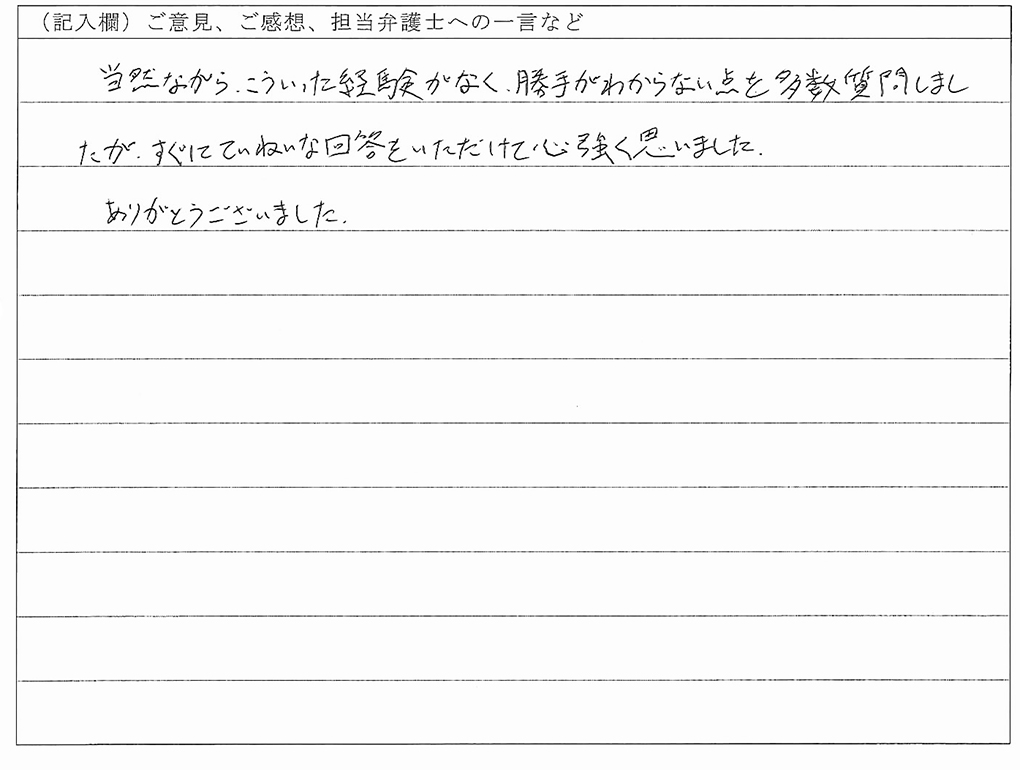 （記入欄）ご意見、ご感想、担当弁護士への一言など
当然ながら、こういった経験がなく、勝手がわからない点を多数質問しまし
たが、すぐにていねいな回答をいただけて心強く思いました。
ありがとうございました。